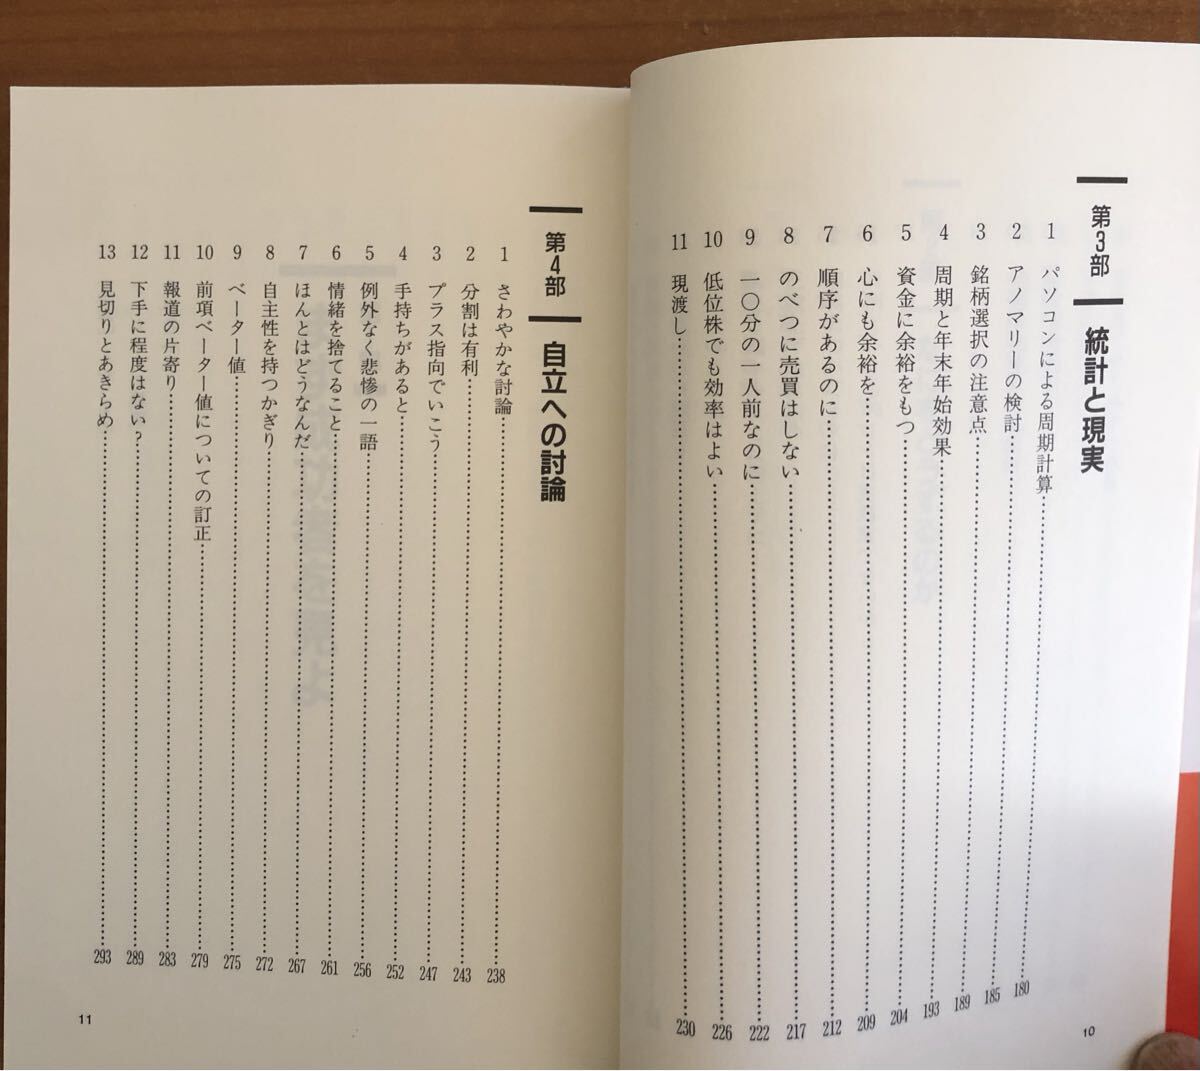 第3部 統計と現実
1 パソコンによる周期計算 180
2 アノマリーの検討 185
3 銘柄選択の注意点 189
4 周期と年末年始効果 193
5 資金に余裕をもつ 204
6 心にも余裕を 209
7 順序があるのに 212
8 のべつに売買はしない 217
9 一〇分の一人前なのに 222
10 低位株でも効率はよい 226
11 現渡し 230
10
第4部 自立への討論
1 さわやかな討論 238
2 分割は有利 243
3 プラス指向でいこう 247
4 手持ちがあると 252
5 例外なく悲惨の一語 256
6 情緒を捨てること 261
7 ほんとはどうなんだ 267
8 自主性を持つかぎり 272
9 ベーター値 275
10 前項ベーター値についての訂正 279
11 報道の片寄り 283
12 下手に程度はない？ 289
13 見切りとあきらめ 293
11